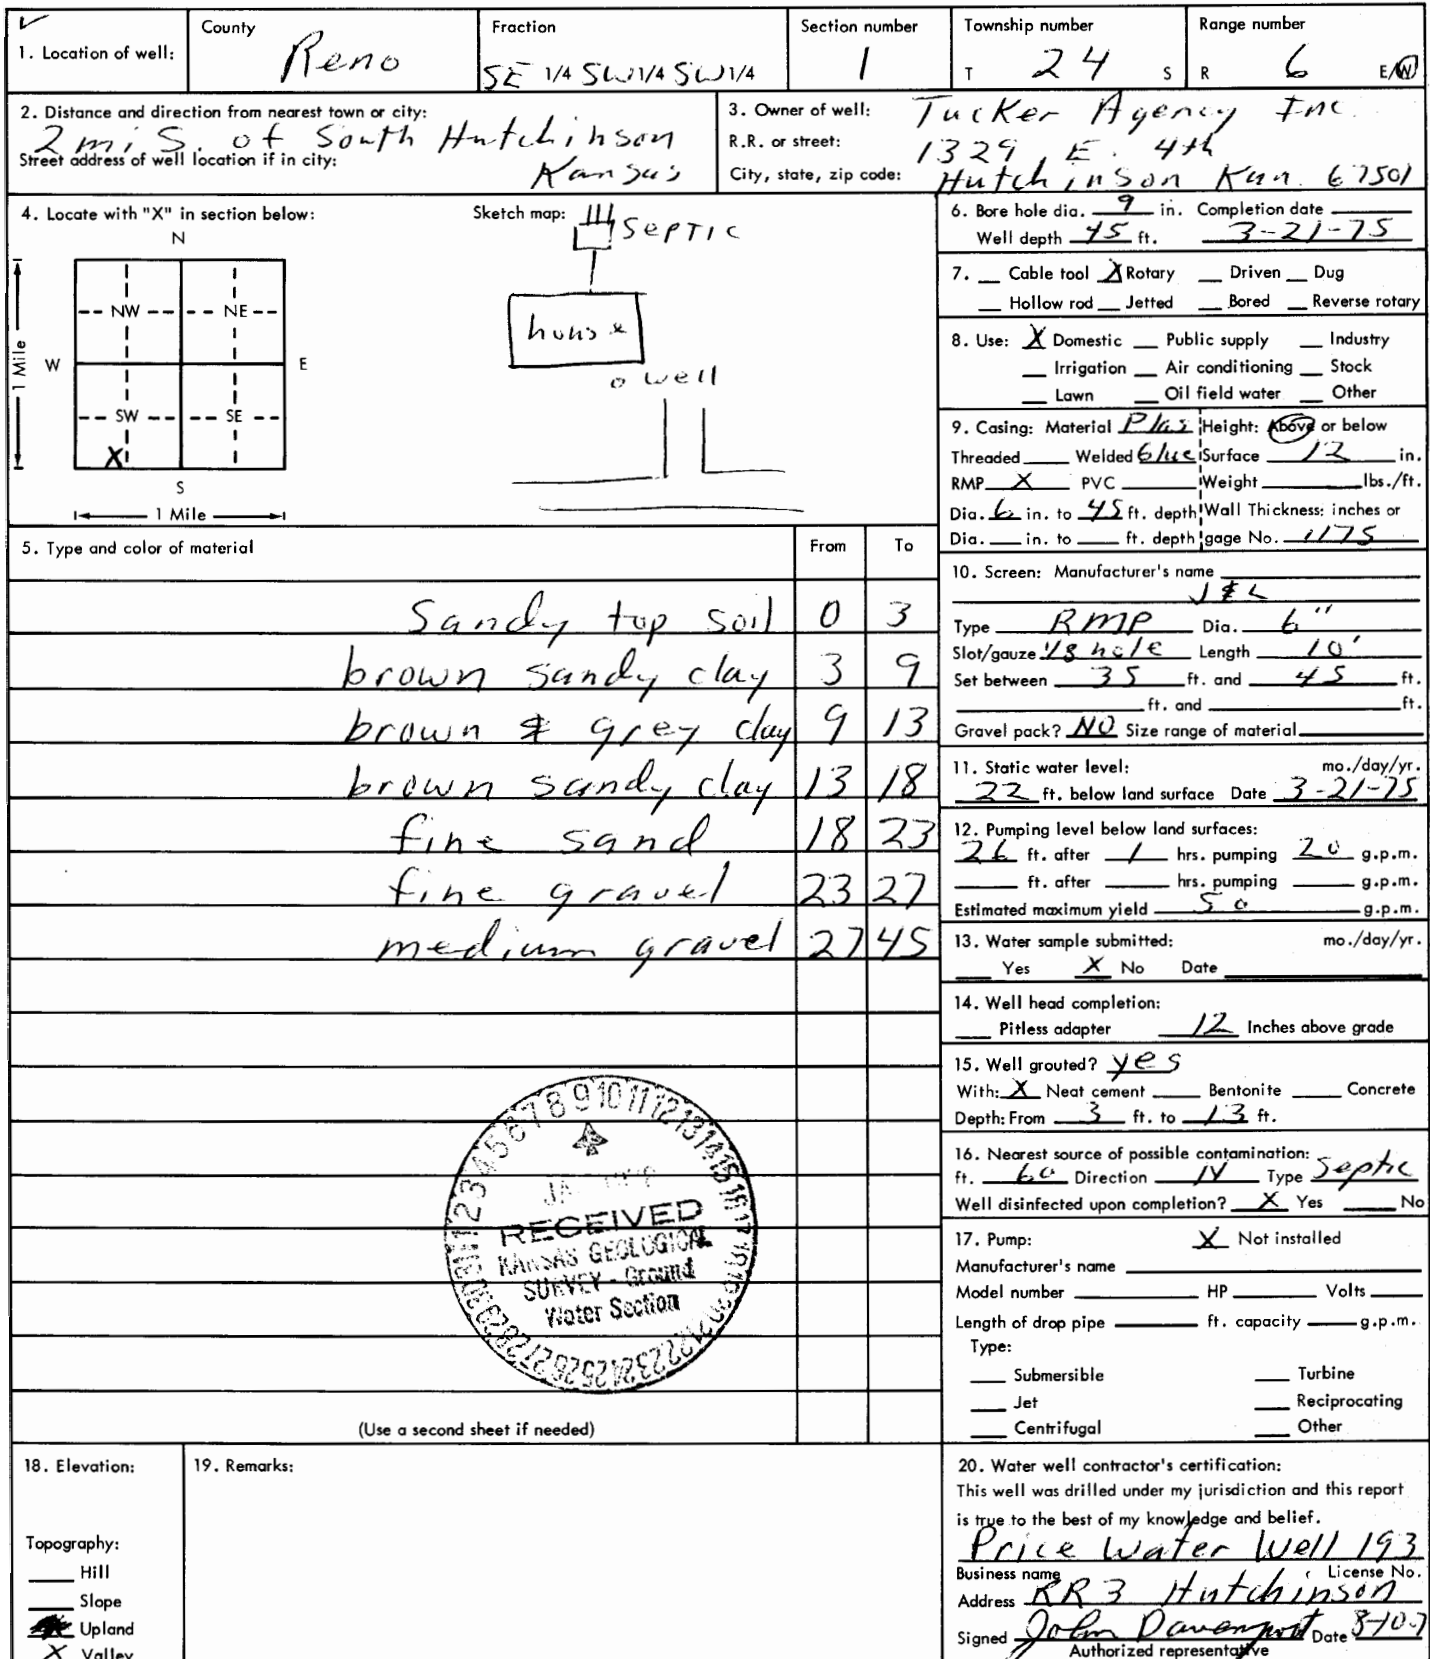 ✓
1. Location of well: County Reno Fraction SE 1/4 SW 1/4 SW 1/4 Section number 1 Township number T 24 S Range number R 6 E/W
2. Distance and direction from nearest town or city:
2 mi S. of South Hutchinson
Street address of well location if in city:
Kansas
3. Owner of well: Tucker Agency Inc.
R.R. or street: 1329 E. 4th
City, state, zip code: Hutchinson Kan. 67501
4. Locate with "X" in section below:
N
NW NE
W E
1 Mile
SW SE
X
S
1 Mile
Sketch map:
SEPTIC
house
o well
5. Type and color of material From To
Sandy top soil 0 3
brown sandy clay 3 9
brown & grey clay 9 13
brown sandy clay 13 18
fine sand 18 23
fine gravel 23 27
medium gravel 27 45
RECEIVED
KANSAS GEOLOGICAL
SURVEY - Ground
Water Section
(Use a second sheet if needed)
6. Bore hole dia. 9 in. Completion date
Well depth 45 ft. 3-21-75
7. __ Cable tool X Rotary __ Driven __ Dug
__ Hollow rod __ Jetted __ Bored __ Reverse rotary
8. Use: X Domestic __ Public supply __ Industry
__ Irrigation __ Air conditioning __ Stock
__ Lawn __ Oil field water __ Other
9. Casing: Material Plas Height: Above or below
Threaded ____ Welded Glue Surface 12 in.
RMP X PVC ____ Weight ____ lbs./ft.
Dia. 6 in. to 45 ft. depth Wall Thickness: inches or
Dia. __ in. to __ ft. depth gage No. .175
10. Screen: Manufacturer's name
J & L
Type RMP Dia. 6"
Slot/gauze 1/8 hole Length 10'
Set between 35 ft. and 45 ft.
____ ft. and ____ ft.
Gravel pack? NO Size range of material
11. Static water level: mo./day/yr.
22 ft. below land surface Date 3-21-75
12. Pumping level below land surfaces:
26 ft. after 1 hrs. pumping 20 g.p.m.
____ ft. after ____ hrs. pumping ____ g.p.m.
Estimated maximum yield 50 g.p.m.
13. Water sample submitted: mo./day/yr.
__ Yes X No Date
14. Well head completion:
__ Pitless adapter 12 Inches above grade
15. Well grouted? yes
With: X Neat cement ____ Bentonite ____ Concrete
Depth: From 3 ft. to 13 ft.
16. Nearest source of possible contamination:
ft. 60 Direction N Type Septic
Well disinfected upon completion? X Yes ____ No
17. Pump: X Not installed
Manufacturer's name
Model number ____ HP ____ Volts ____
Length of drop pipe ____ ft. capacity ____ g.p.m.
Type:
__ Submersible __ Turbine
__ Jet __ Reciprocating
__ Centrifugal __ Other
18. Elevation:
Topography:
__ Hill
__ Slope
Upland
X Valley
19. Remarks:
20. Water well contractor's certification:
This well was drilled under my jurisdiction and this report
is true to the best of my knowledge and belief.
Price Water Well 193
Business name License No.
Address RR 3 Hutchinson
Signed John Davenport Date
Authorized representative